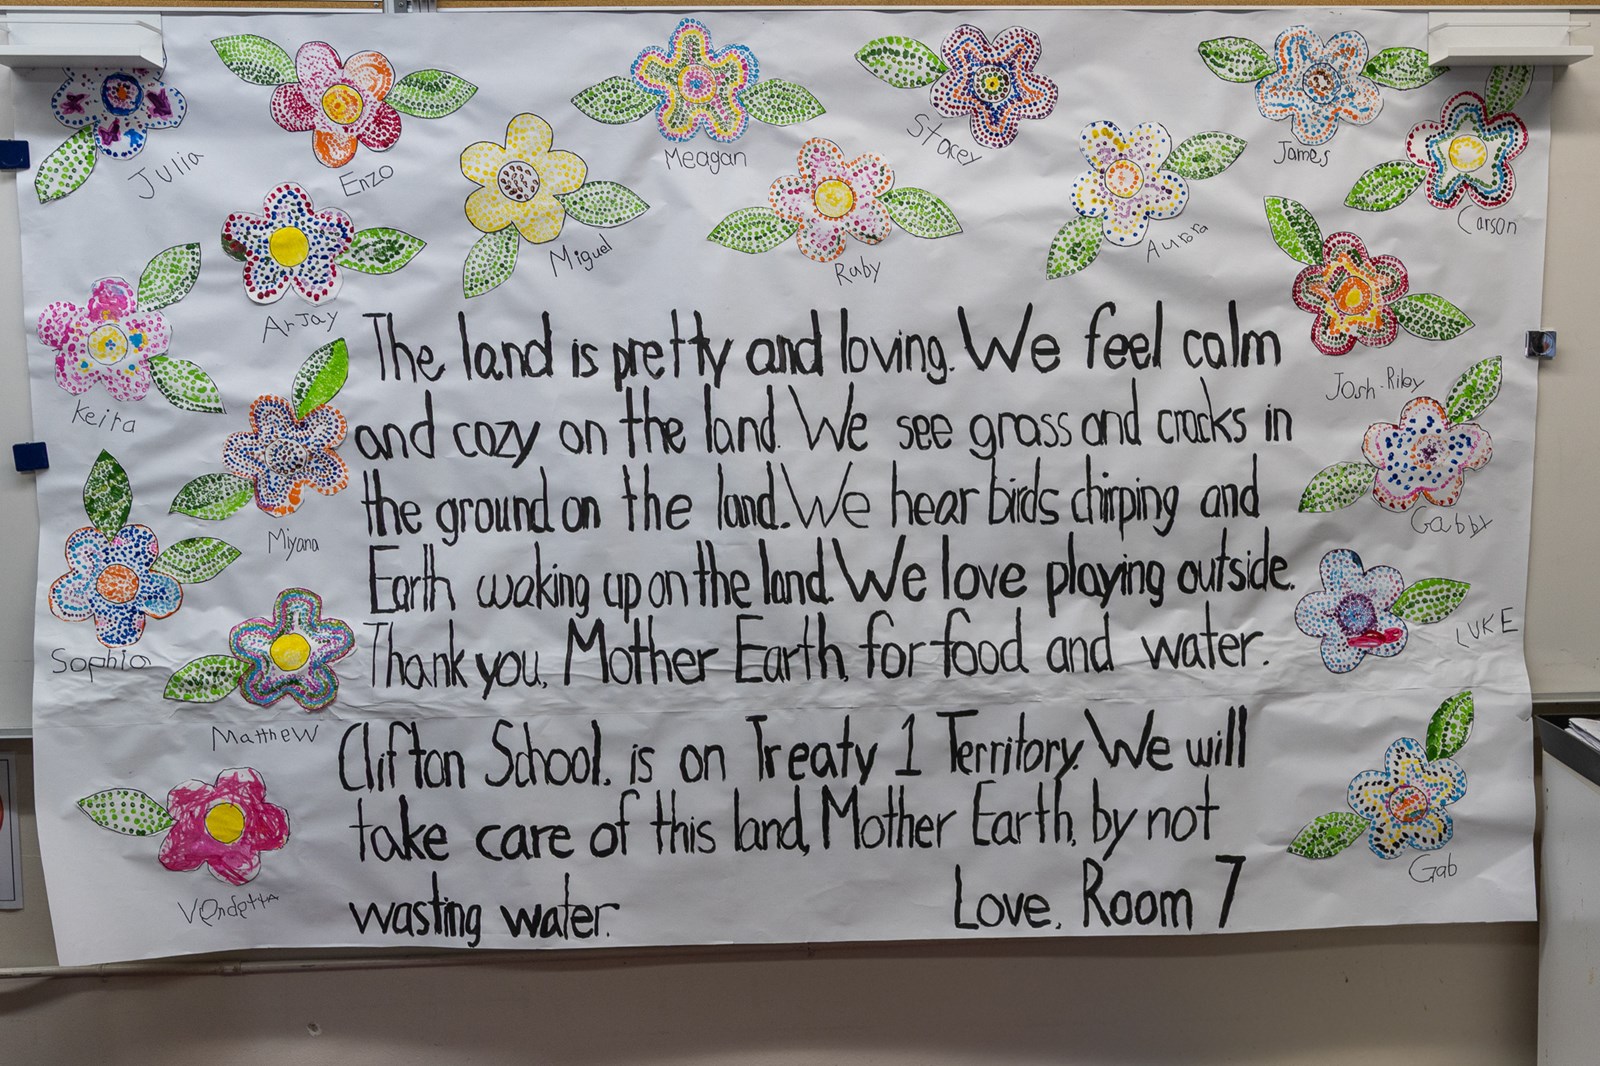 Julia
Enzo
Meagan
Stacey
James
Carson
Miguel
Ruby
Aurora
ArJay
Keira
Josh-Riley
Miyana
Gabby
Sophia
LUKE
Matthew
Vendetta
Gab
The land is pretty and loving. We feel calm
and cozy on the land. We see grass and cracks in
the ground on the land. We hear birds chirping and
Earth waking up on the land. We love playing outside.
Thank you, Mother Earth, for food and water.
Clifton School, is on Treaty 1 Territory. We will
take care of this land, Mother Earth, by not
wasting water.
Love, Room 7